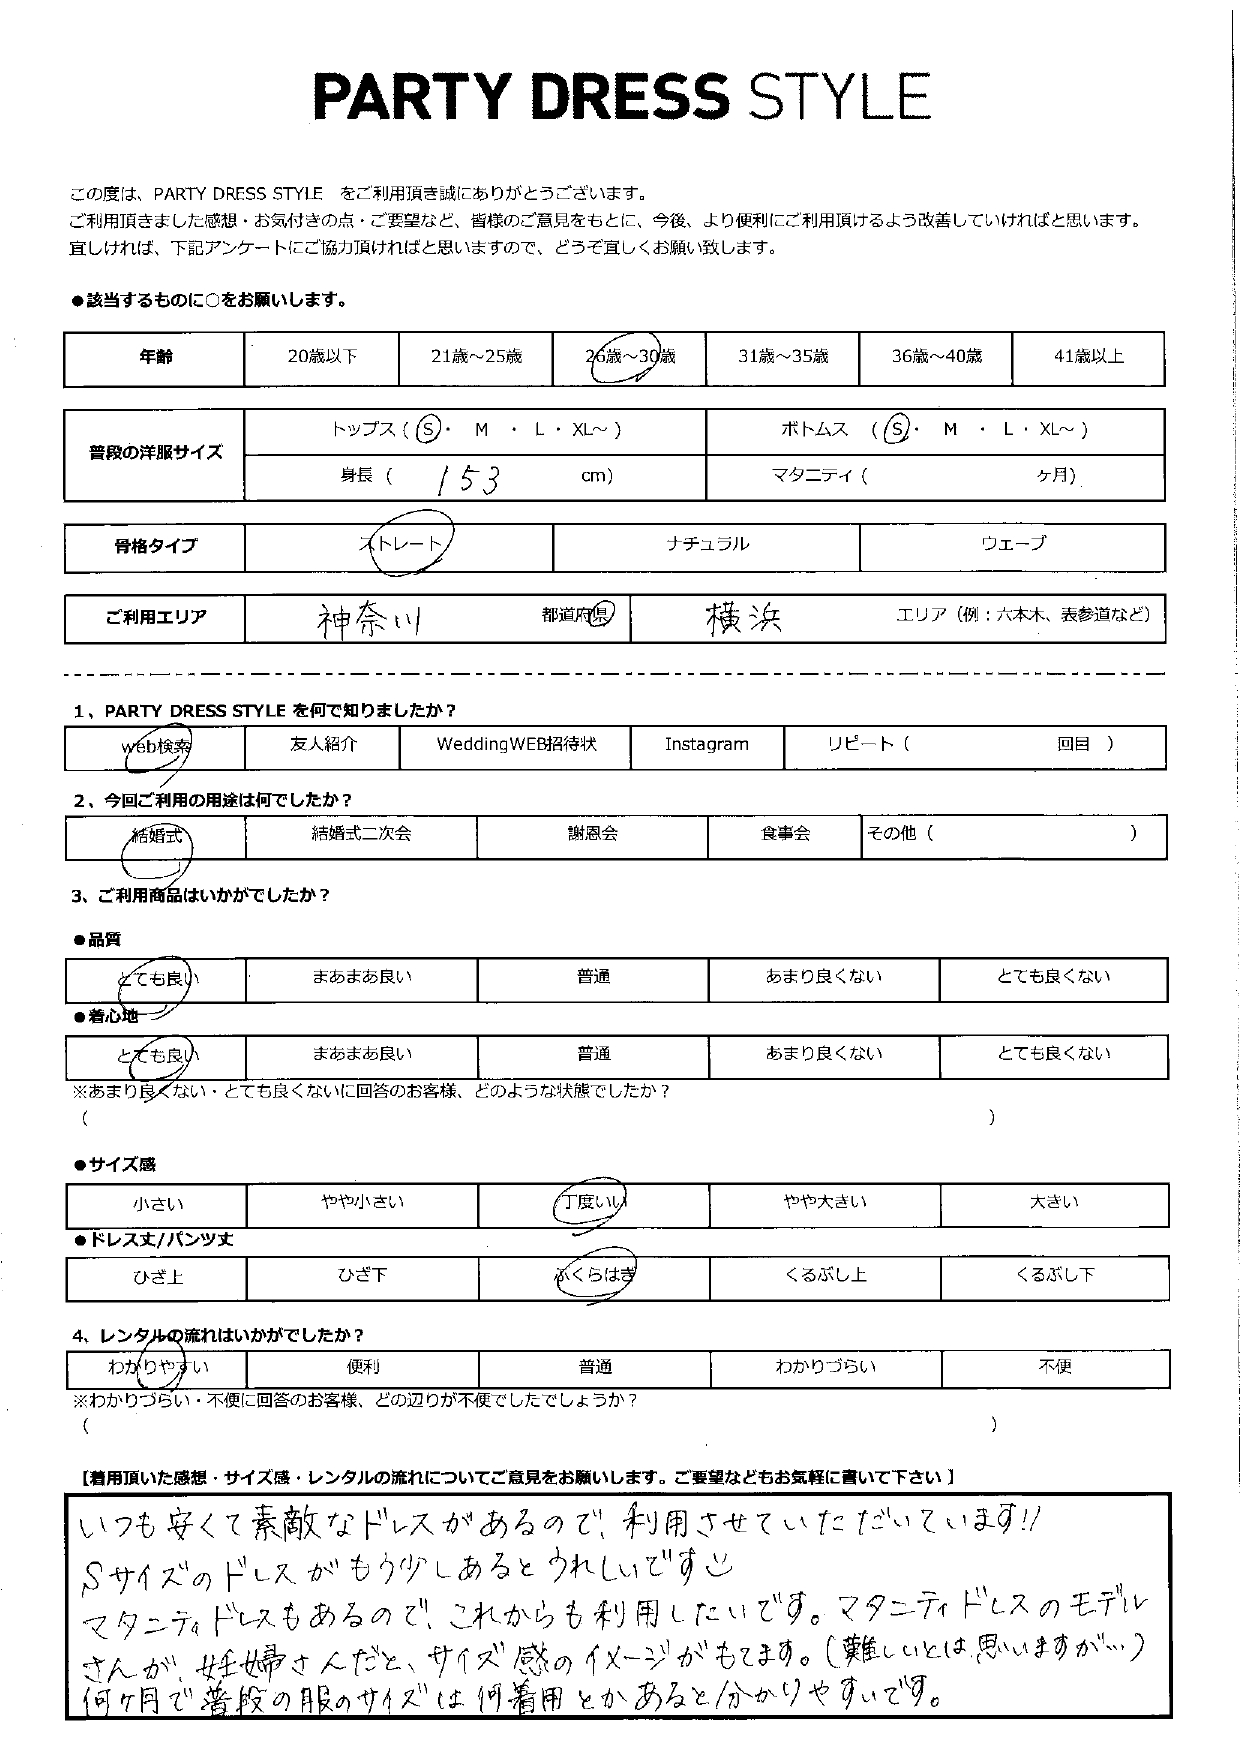 PARTY DRESS STYLE
この度は、PARTY DRESS STYLE をご利用頂き誠にありがとうございます。
ご利用頂きました感想・お気付きの点・ご要望など、皆様のご意見をもとに、今後、より便利にご利用頂けるよう改善していければと思います。
宜しければ、下記アンケートにご協力頂ければと思いますので、どうぞ宜しくお願い致します。
●該当するものに○をお願いします。
年齢 20歳以下 21歳～25歳 26歳～30歳 31歳～35歳 36歳～40歳 41歳以上
普段の洋服サイズ
トップス ( S ・ M ・ L ・ XL～ ) ボトムス ( S ・ M ・ L ・ XL～ )
身長 ( 153 cm) マタニティ ( ヶ月)
骨格タイプ ストレート ナチュラル ウェーブ
ご利用エリア 神奈川 都道府県 横浜 エリア（例：六本木、表参道など）
1、PARTY DRESS STYLE を何で知りましたか？
web検索 友人紹介 WeddingWEB招待状 Instagram リピート ( 回目 )
2、今回ご利用の用途は何でしたか？
結婚式 結婚式二次会 謝恩会 食事会 その他 ( )
3、ご利用商品はいかがでしたか？
●品質
とても良い まあまあ良い 普通 あまり良くない とても良くない
●着心地
とても良い まあまあ良い 普通 あまり良くない とても良くない
※あまり良くない・とても良くないに回答のお客様、どのような状態でしたか？
( )
●サイズ感
小さい やや小さい 丁度いい やや大きい 大きい
●ドレス丈/パンツ丈
ひざ上 ひざ下 ふくらはぎ くるぶし上 くるぶし下
4、レンタルの流れはいかがでしたか？
わかりやすい 便利 普通 わかりづらい 不便
※わかりづらい・不便に回答のお客様、どの辺りが不便でしたでしょうか？
( )
【着用頂いた感想・サイズ感・レンタルの流れについてご意見をお願いします。ご要望などもお気軽に書いて下さい】
いつも安くて素敵なドレスがあるので、利用させていただいています!!
Sサイズのドレスがもう少しあるとうれしいです
マタニティドレスもあるので、これからも利用したいです。マタニティドレスのモデル
さんが、妊婦さんだと、サイズ感のイメージがもてます。(難しいとは思いますが…)
何ヶ月で普段の服のサイズは何着用とかあると分かりやすいです。